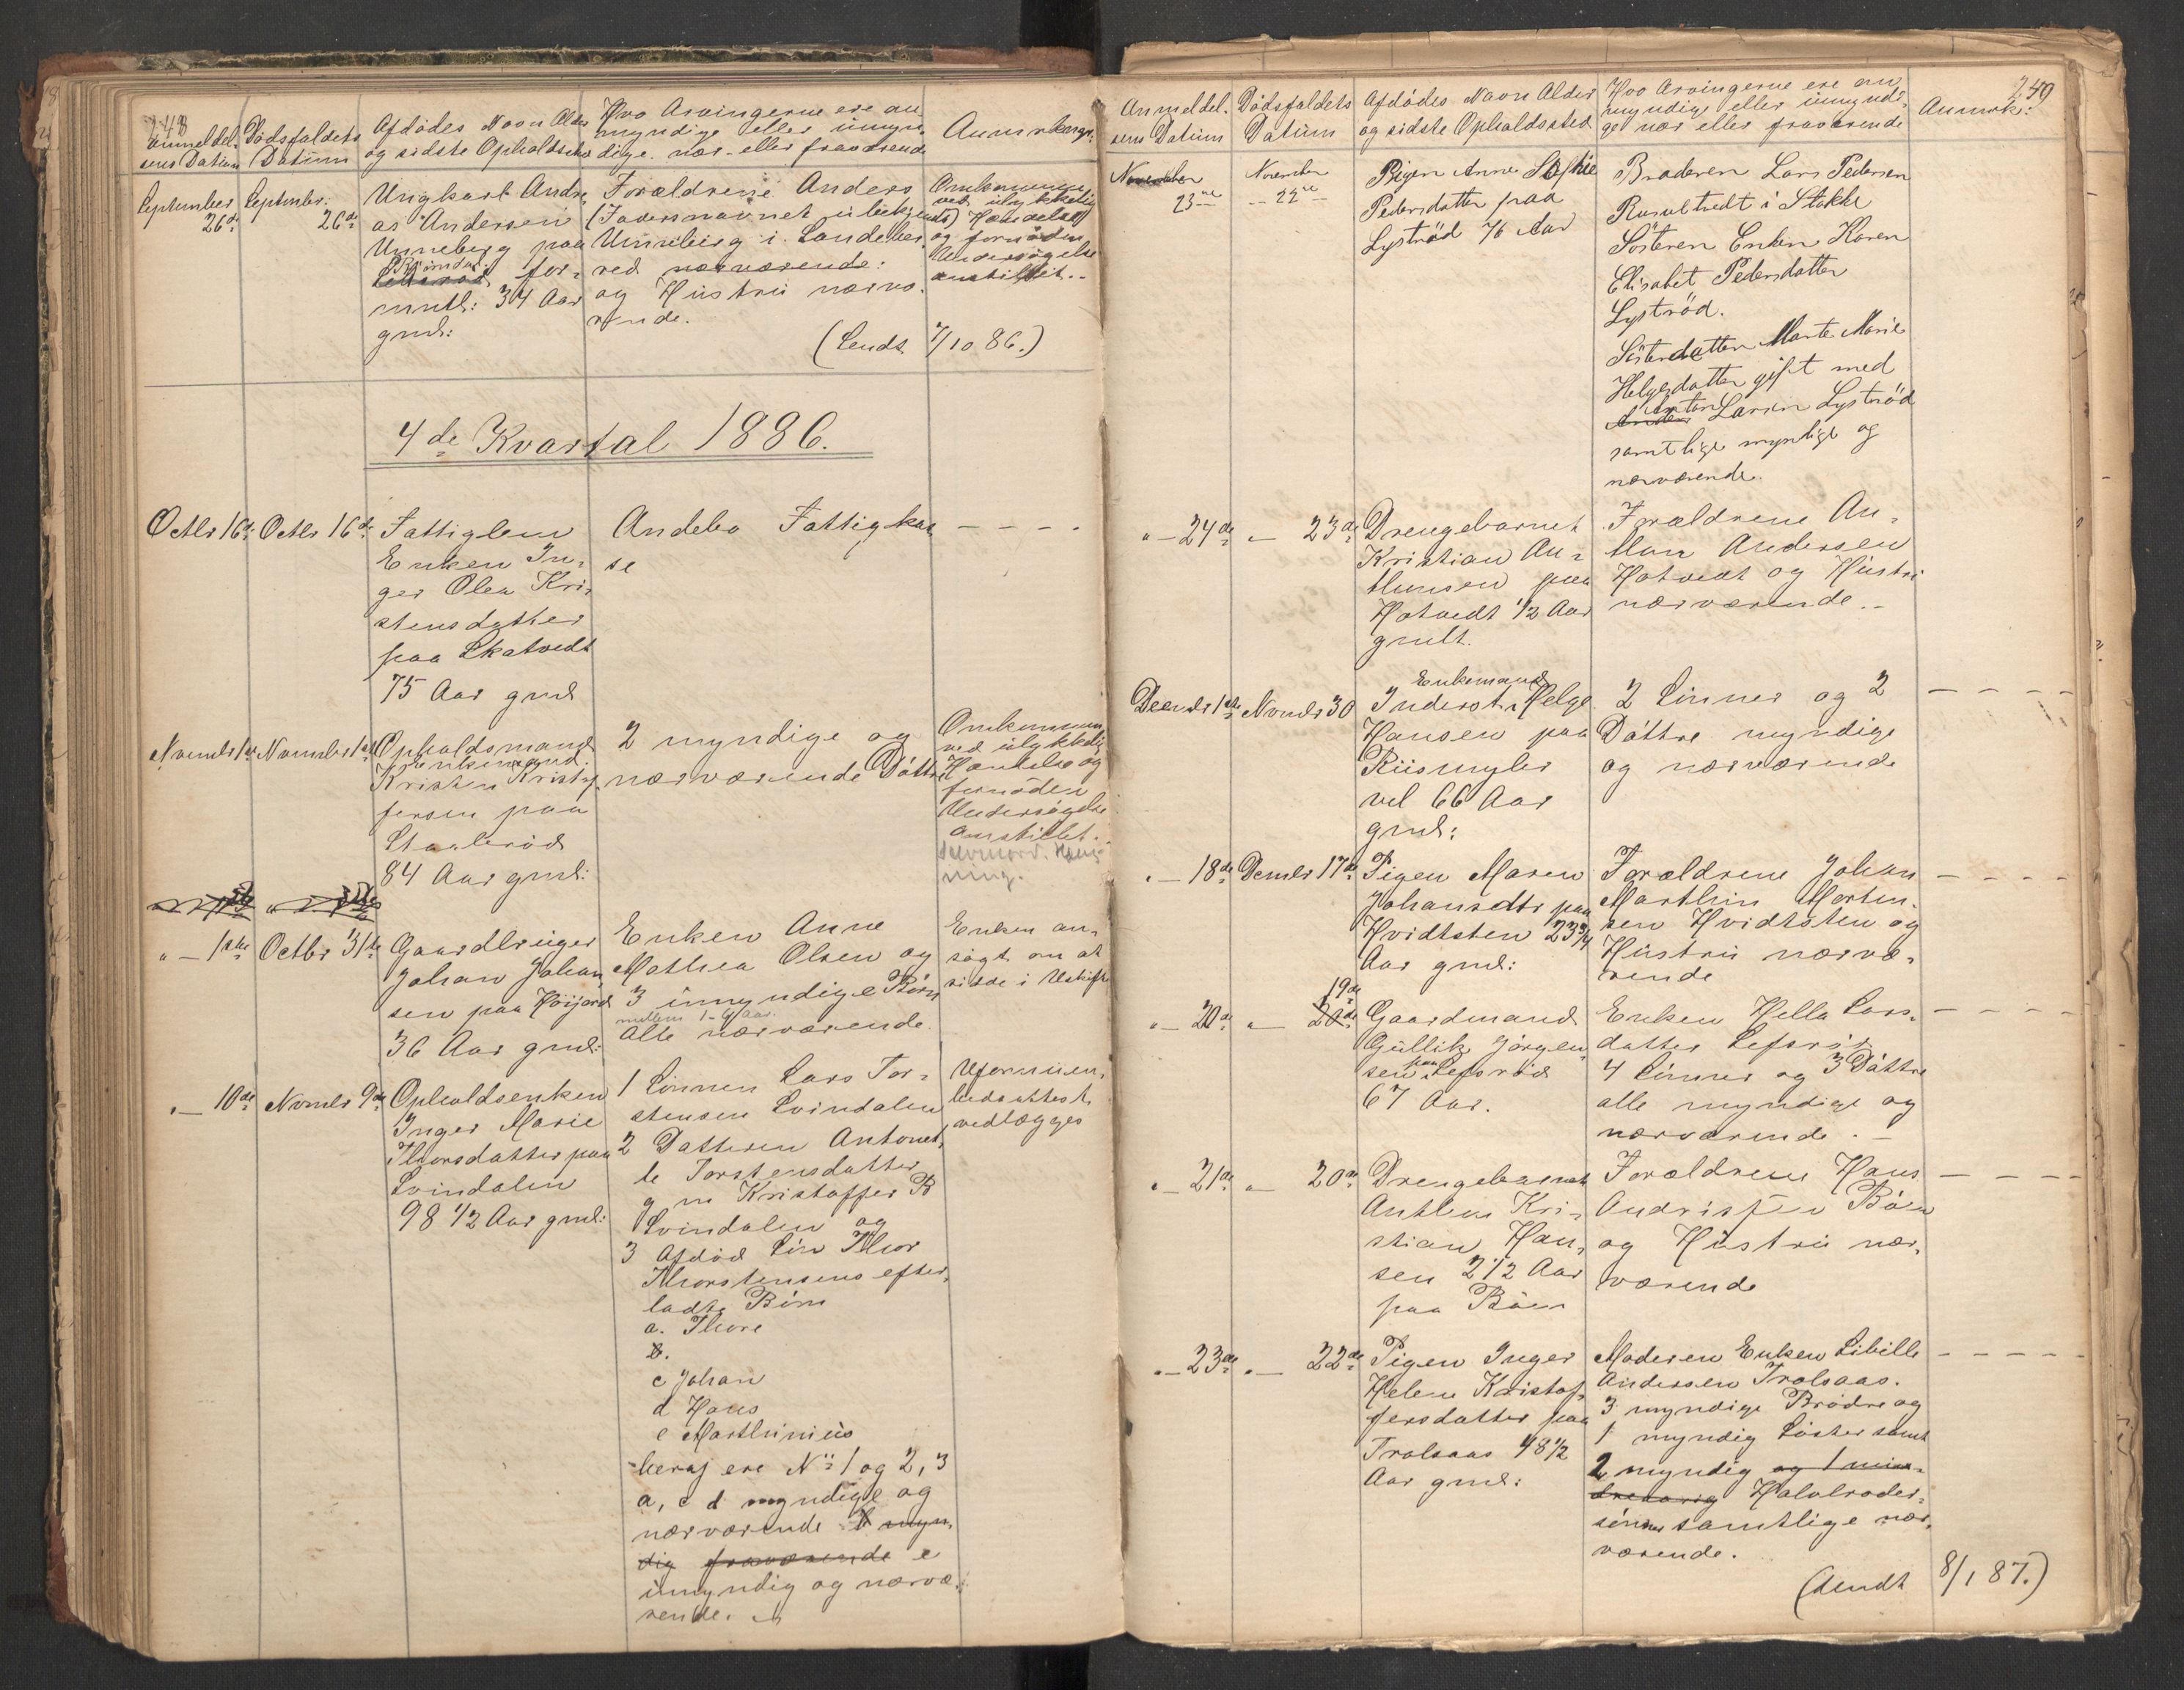 248
Anmeldel-
sens Datum
Dödsfaldets
Datum
Afdödes Navn Alder
og sidste Opholdssted
Hvo Arvingerne ere om
myndige eller umyn-
dige. nær- eller fraværende
Anmerkngr.
September
26de
September
26de
Ungkarl Andre-
as Andersen
Unneberg paa
for-
mntl: 34 Aar
gml:
Forældrene Anders
(Faversnavnet ubekjendt)
Unneberg i Sandeher-
red nærværende:
og Hustru nærvæ-
rende.
Omkommen
ved ulykkelig
Hændelse
og fornöden
Undersögelse
anstillet.-
(Sendt 7/10 86.)
4de Kvartal 1886.
Octbr 16de
Octbr 16de
Fattiglem
Enken In-
ger Olea Kri-
stensdatter
paa Skatvedt
75 Aar gml
Andebo Fattigkas-
se
- - - -
Novmbr 1ste
Novmber 1ste
Opholdsmand
Enkemand.
Kristen Kristof-
fersen paa
Staalerød
84 Aar gml:
2 myndige og
nærværende Döttre
Omkommen
ved ulykkelig
Hændelse og
fornöden
Undersögelse
anstillet.
Selvmord. Hæng-
ning.
" - 1ste
Octbr 31te
Gaardbruger
Johan Johan-
sen paa Höijord
36 Aar gml:
Enken Anne
Mathea Olsen og
3 umyndige Börn
mellem 1-6 Aar.
Alle nærværende.
Enken an-
sögt om at
sidde i Uskifte
" - 10de
Novmbr 9de
Opholdsenken
Inger Marie
Thorsdatter paa
Svindalen
98 1/2 Aar gml:
1 Sönnen Lars Tor-
stensen Svindalen
2 Datteren Antonet-
te Torstensdatter
g m Kristoffer B
Svindalen og
3 Afdöd Sön Thor
Thorstensens efter-
ladte Börn
a. Thore
b.
c Johan
d Hans
e Marthinius
heraf ere No 1 og 2, 3
a, c d myndige og
nærværende b myn-
dig fraværende e
umyndig og nærvæ-
rende.
Uformuen-
hedsattest
vedlægges
249
Anmeldel-
sens Datum
Dödsfaldets
Datum
Afdödes Navn Alder
og sidste Opholdssted
Hvo Arvingerne ere om
myndige eller umyndi-
ge nær eller fraværende
Anmrk:
November
23de
November
22de
Pigen Anne Sophie
Pedersdatter paa
Lyströd 76 Aar
Broderen Lars Pedersen
i Stokke
Sösteren Enken Karen
Elisabet Pedersdatter
Lyströd.
Sösterdatter Marte Marie
Helgesdatter gift med
Anton
Anders Larsen Lyströd
samtlige myndige og
nærværende.
" - 24de
" - 23de
Drengebarnet
Kristian An-
thonsen paa
Hotvedt 1/2 Aar
gmlt.
Forældrene An-
thon Andersen
Hotvedt og Hustru
nærværende.-
Decmbr 1ste
Novmbr 30
Enkemand
Inderst Helge
Hansen paa
Riismyhr
vel 66 Aar
gml:
2 Sönner og 2
Döttre myndige
og nærværende
- - - -
" - 18de
Decmbr 17de
Pigen Maren
Johansdtr paa
Hvidtsten 23 3/4
Aar gml:
Forældrene Johan
Marthin Morten-
sen Hvidtsten og
Hustru nærvæ-
rende
- - - -
" - 20de
19de
" - 20de
Gaardmand
Gullik Jörgen-
sen paa Lefsröd
67 Aar.
Enken Hella Lars-
datter Lefsröd
4 Sönner og 3 Döttre
alle myndige og
nærværende.-
- - - -
" - 21de
" - 20de
Drengebarnet
Anthon Kri-
stian Han-
sen 2 1/2 Aar
paa Böen
Forældrene Hans
Andersen Böen
og Hustru nær-
værende
- - - -
" - 23de
" - 22de
Pigen Inger
Helene Kristof-
fersdatter paa
Trolsaas 48 1/2
Aar gml:
Moderen Enken Sibille
Andersen Trolsaas.
3 myndige Brödre og
1 myndig Söster samt
2 myndig og 1 min-
dreaarig Halvbroder-
sönner samtlige nær-
værende.
- - - -
(Sendt 8/1 87.)